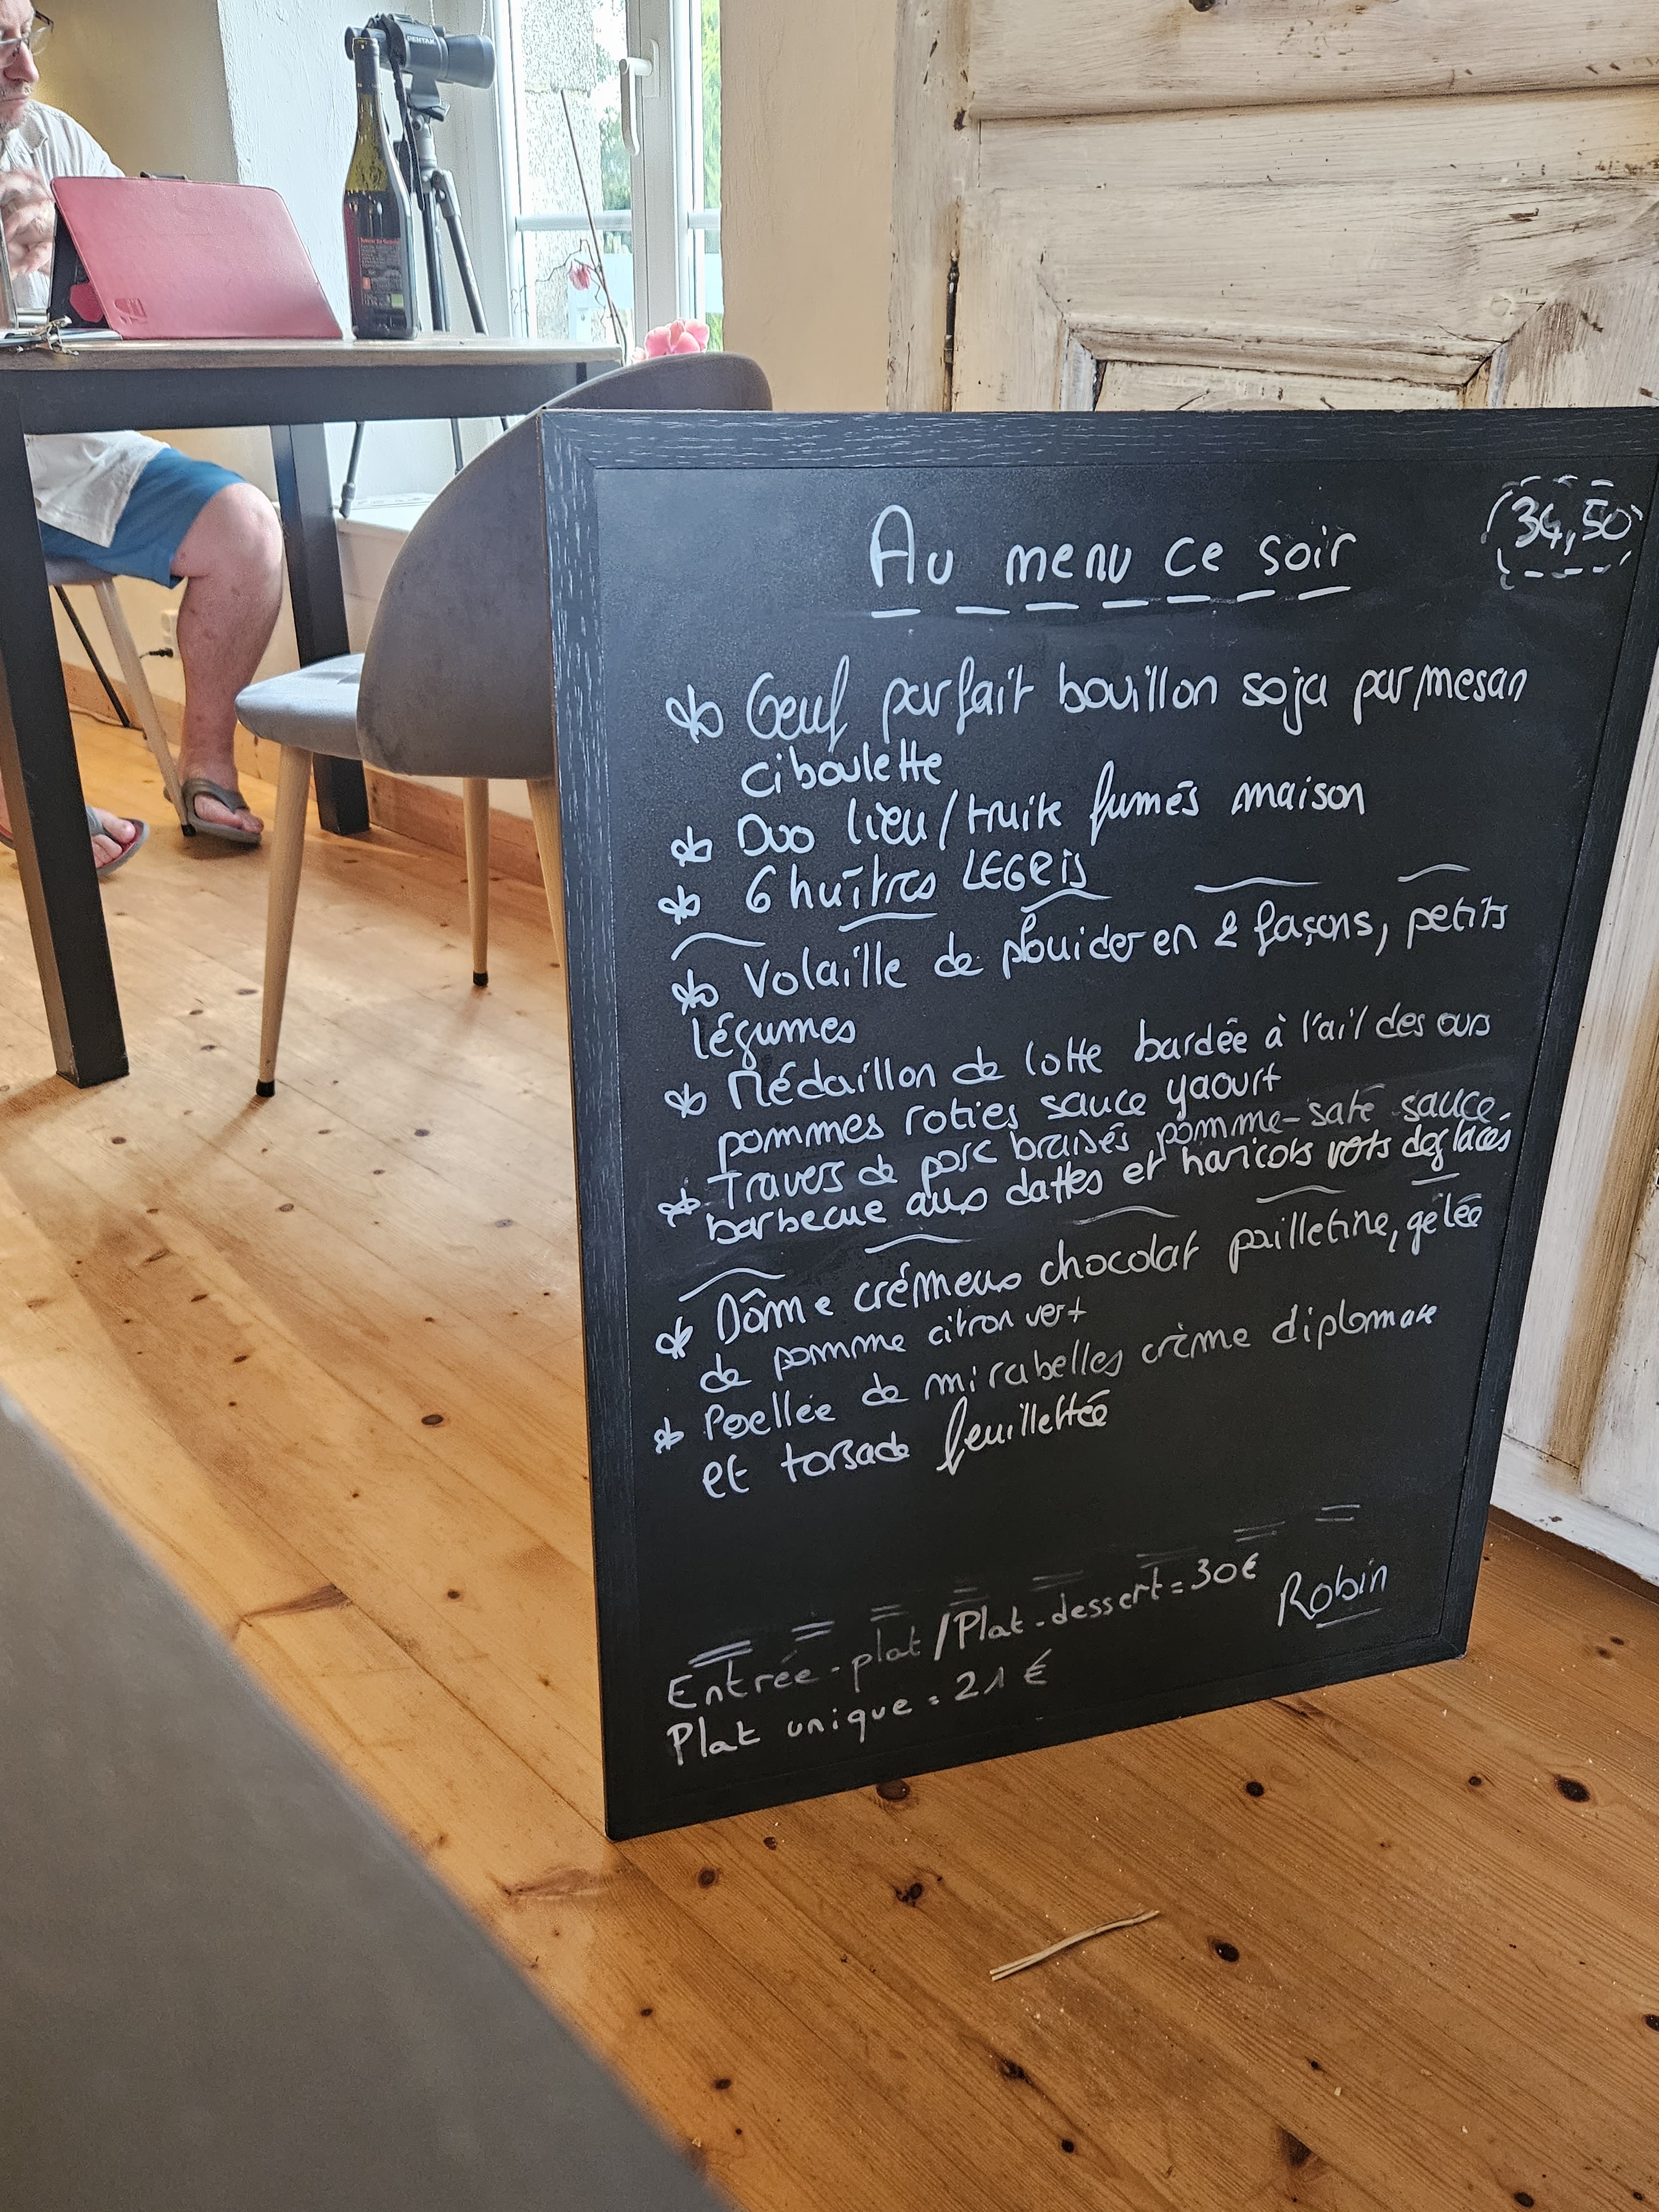 PENTAX
Au menu ce soir
34,50
Oeuf parfait bouillon soja parmesan
ciboulette
Duo lieu/truite fumés maison
6 huîtres LEGRIS
Volaille de plouider en 2 façons, petits
légumes
Médaillon de lotte bardée à l'ail des ours
pommes roties sauce yaourt
Travers de porc braisés pomme-saté sauce
barbecue aux dattes et haricots verts deglacés
Dôme crémeux chocolat pailletine, gelée
de pomme citron vert
Poellée de mirabelles crème diplomate
et torsade feuilletée
Entrée-plat/Plat-dessert=30€
Robin
Plat unique = 21 €